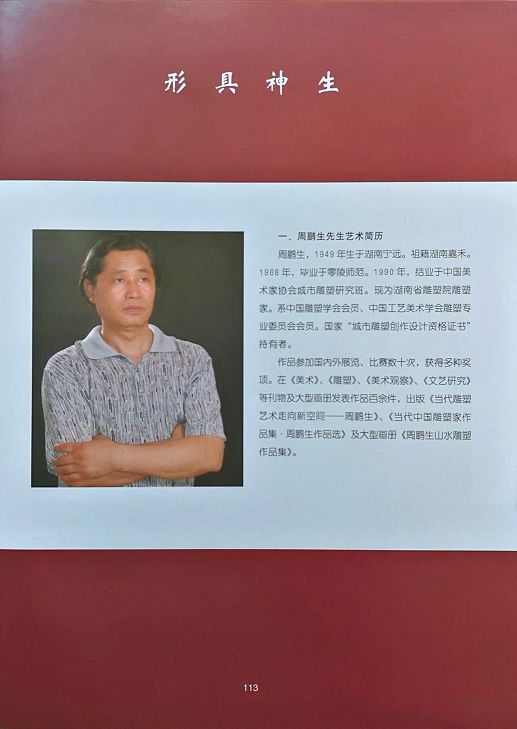 形具神生
一、周鹏生先生艺术简历
周鹏生，1949年生于湖南宁远。祖籍湖南嘉禾。
1968年，毕业于零陵师范。1990年，结业于中国美
术家协会城市雕塑研究班。现为湖南省雕塑院雕塑
家。系中国雕塑学会会员、中国工艺美术学会雕塑专
业委员会会员。国家“城市雕塑创作设计资格证书”
持有者。
作品参加国内外展览、比赛数十次，获得多种奖
项。在《美术》、《雕塑》、《美术观察》、《文艺研究》
等刊物及大型画册发表作品百余件，出版《当代雕塑
艺术走向新空间——周鹏生》、《当代中国雕塑家作
品集·周鹏生作品选》及大型画册《周鹏生山水雕塑
作品集》。
113